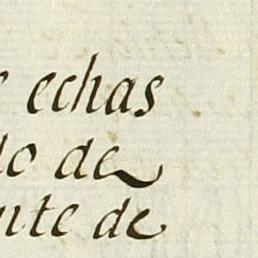 echas
do de
nte de